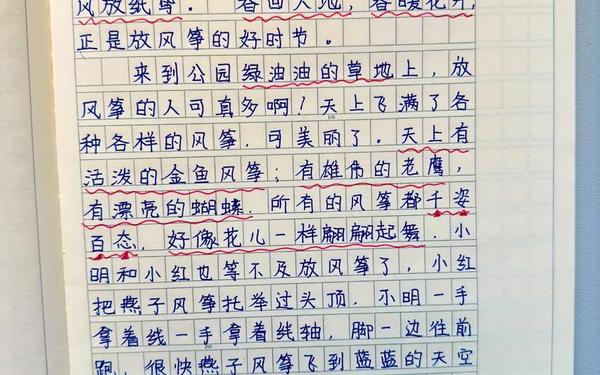 风放纸鸢。"春回大地,春暖花开,
正是放风筝的好时节。
来到公园绿油油的草地上,放
风筝的人可真多啊!天上飞满了各
种各样的风筝,可美丽了。天上有
活泼的金鱼风筝;有雄伟的老鹰,
有漂亮的蝴蝶.所有的风筝都千姿
百态,好像花儿一样翩翩起舞.小
明和小红也等不及放风筝了,小红
把燕子风筝托举过头顶.小明一手
拿着线一手拿着线轴,脚一边往前
跑,很快燕子风筝飞到蓝蓝的天空